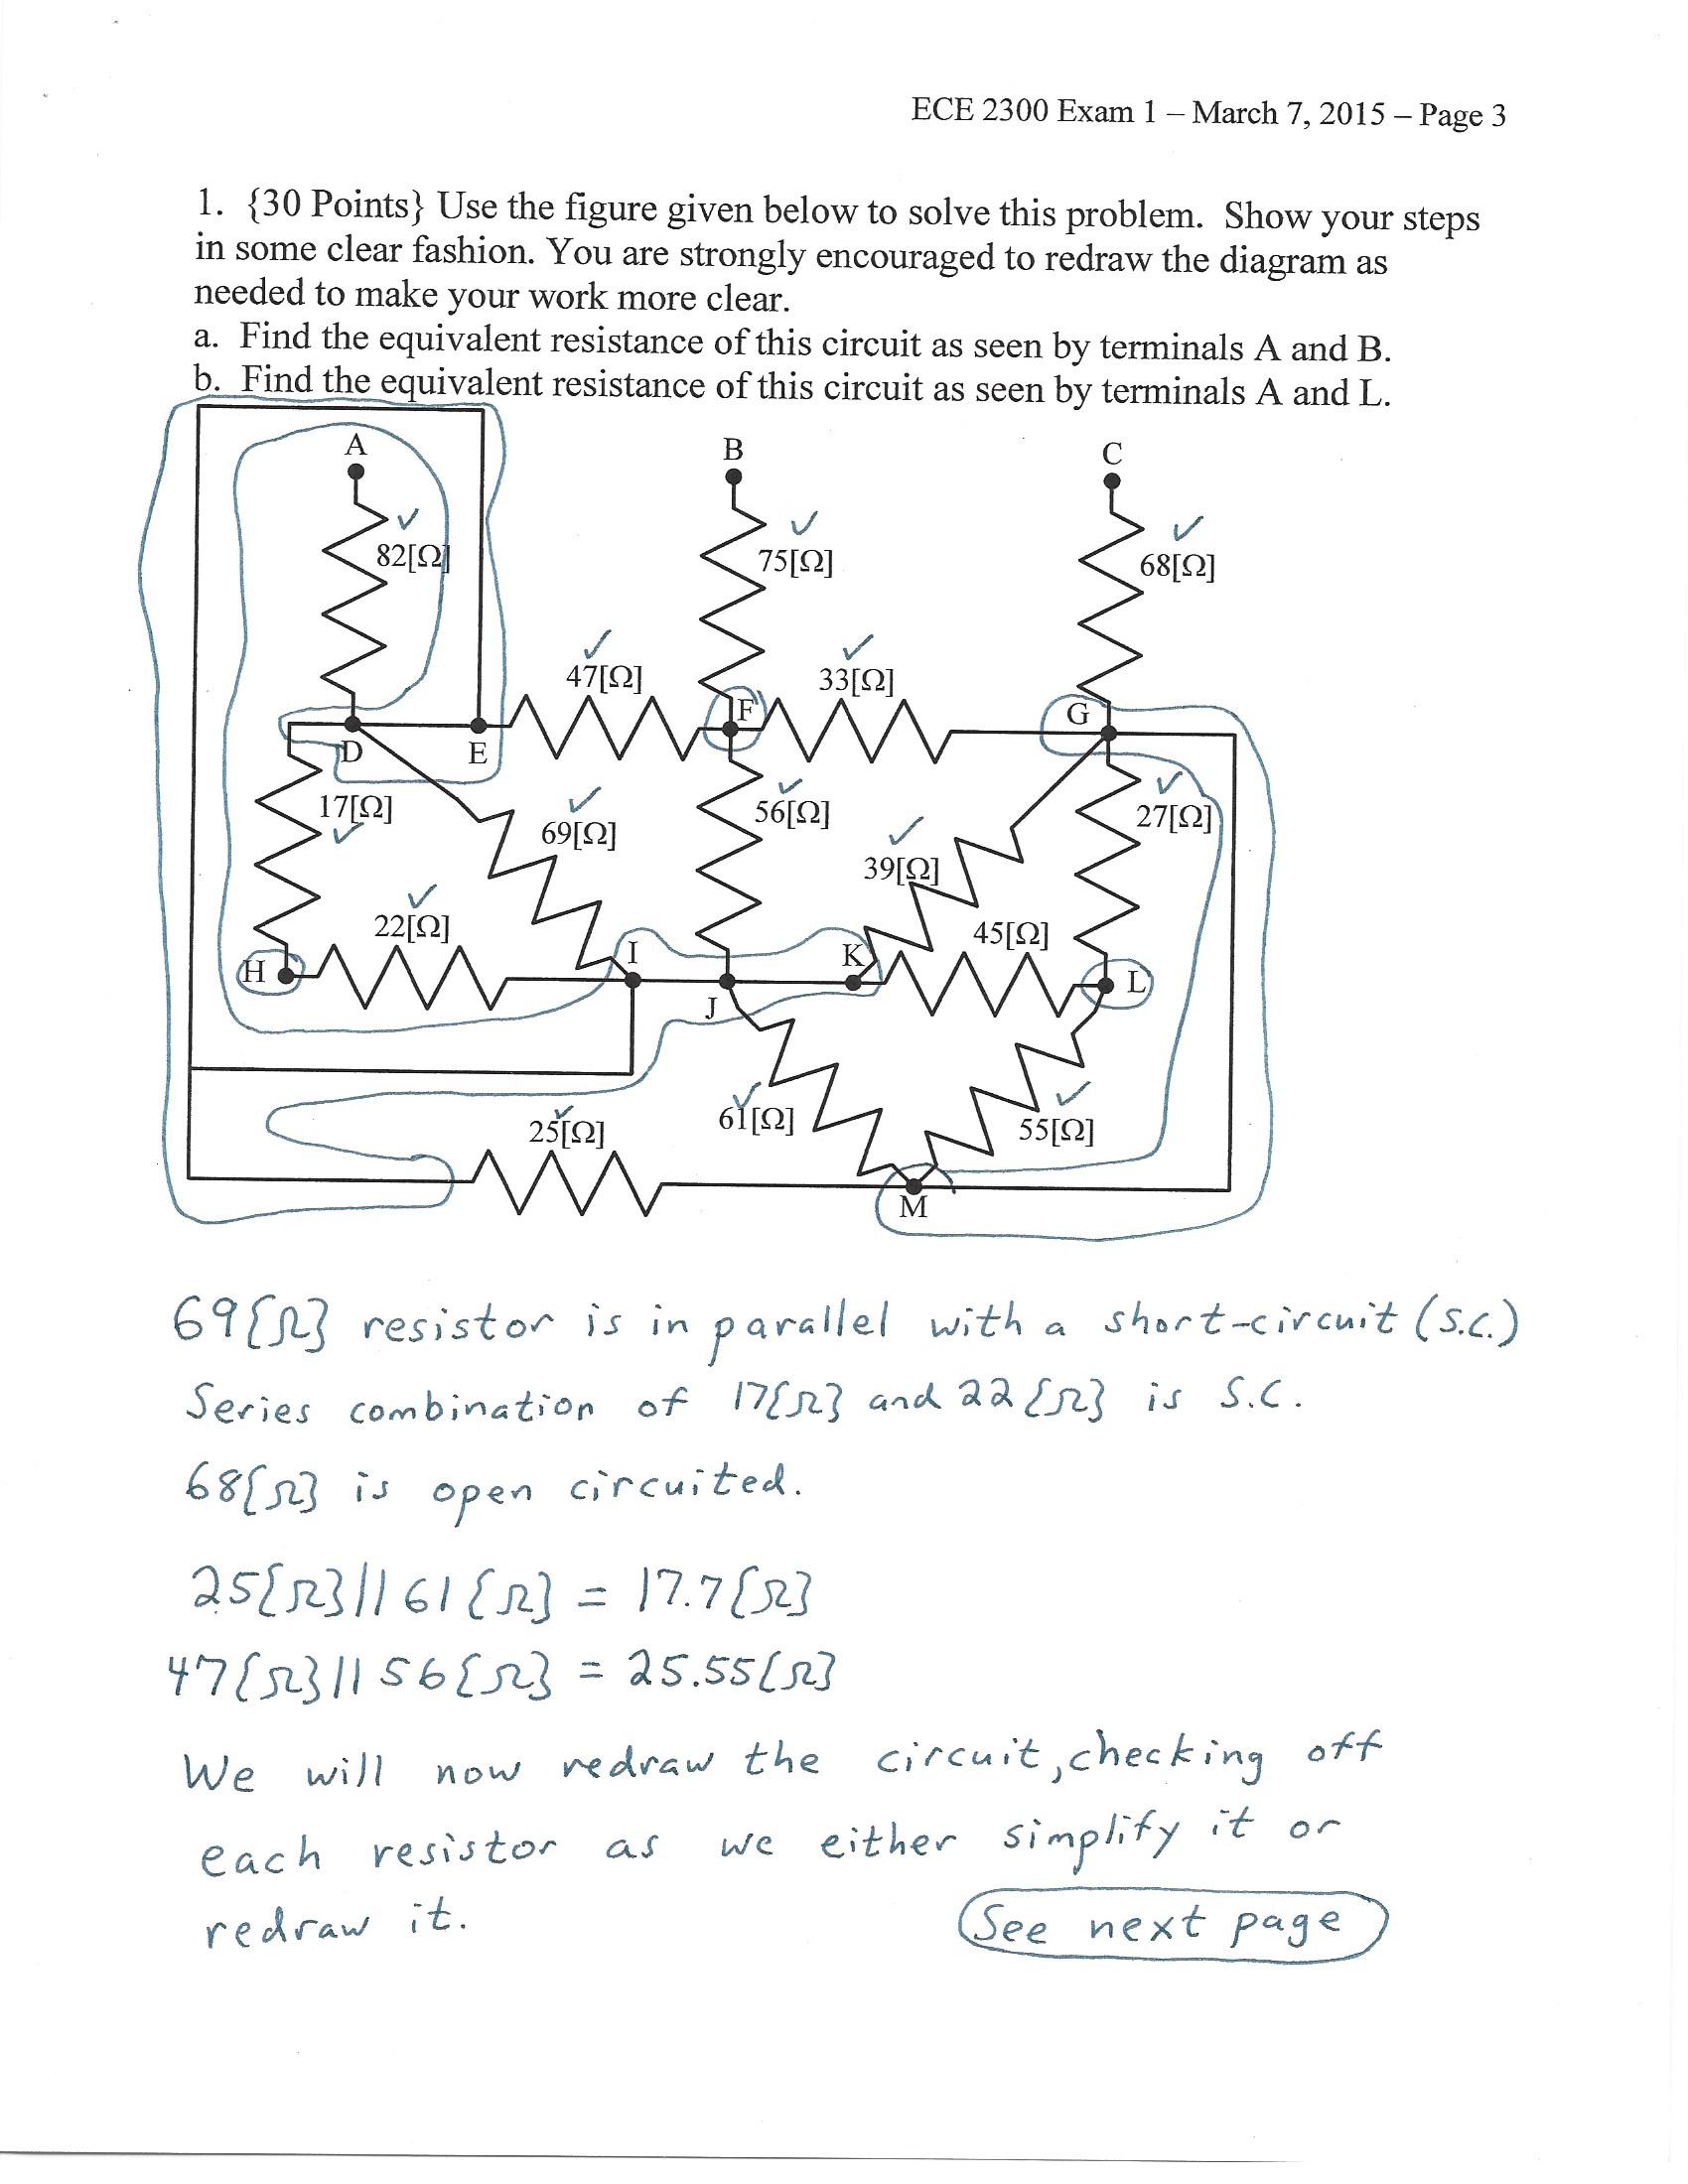 ECE 2300 Exam 1 – March 7, 2015 – Page 3
1. {30 Points} Use the figure given below to solve this problem. Show your steps
in some clear fashion. You are strongly encouraged to redraw the diagram as
needed to make your work more clear.
a. Find the equivalent resistance of this circuit as seen by terminals A and B.
b. Find the equivalent resistance of this circuit as seen by terminals A and L.
A
B
C
82[Ω]
75[Ω]
68[Ω]
47[Ω]
33[Ω]
F
G
D
E
17[Ω]
69[Ω]
56[Ω]
27[Ω]
39[Ω]
22[Ω]
45[Ω]
H
I
K
L
J
25[Ω]
61[Ω]
55[Ω]
M
69[Ω] resistor is in parallel with a short-circuit (s.c.)
Series combination of 17[Ω] and 22[Ω] is S.C.
68[Ω] is open circuited.
25[Ω]||61[Ω] = 17.7[Ω]
47[Ω]||56[Ω] = 25.55[Ω]
We will now redraw the circuit, checking off
each resistor as we either simplify it or
redraw it.
See next page